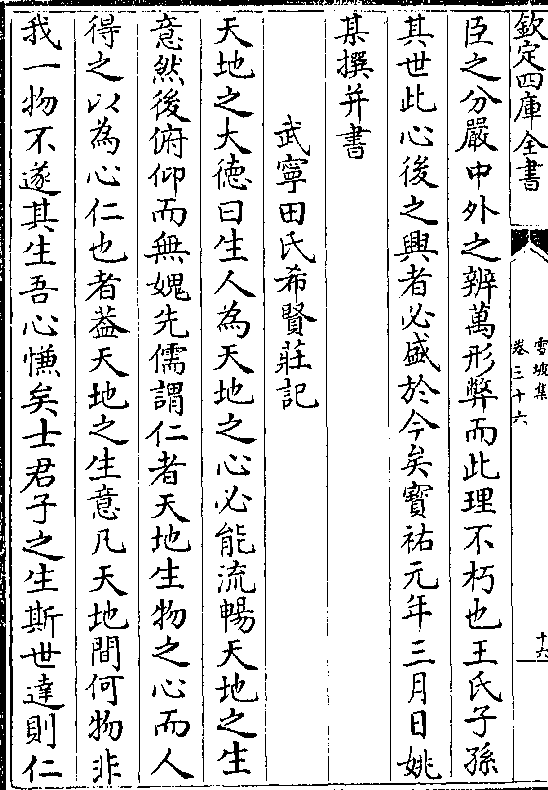 欽定四庫全書
雪坡集
卷三十六
十六
臣之分嚴中外之辨萬形弊而此理不朽也王氏子孫
其世此心後之興者必盛於今矣寳祐元年三月日姚
某撰并書
武寧田氏希賢莊記
天地之大德曰生人為天地之心必能流暢天地之生
意然後俯仰而無媿先儒謂仁者天地生物之心而人
得之以為心仁也者葢天地之生意凡天地間何物非
我一物不遂其生吾心慊矣士君子之生斯世達則仁